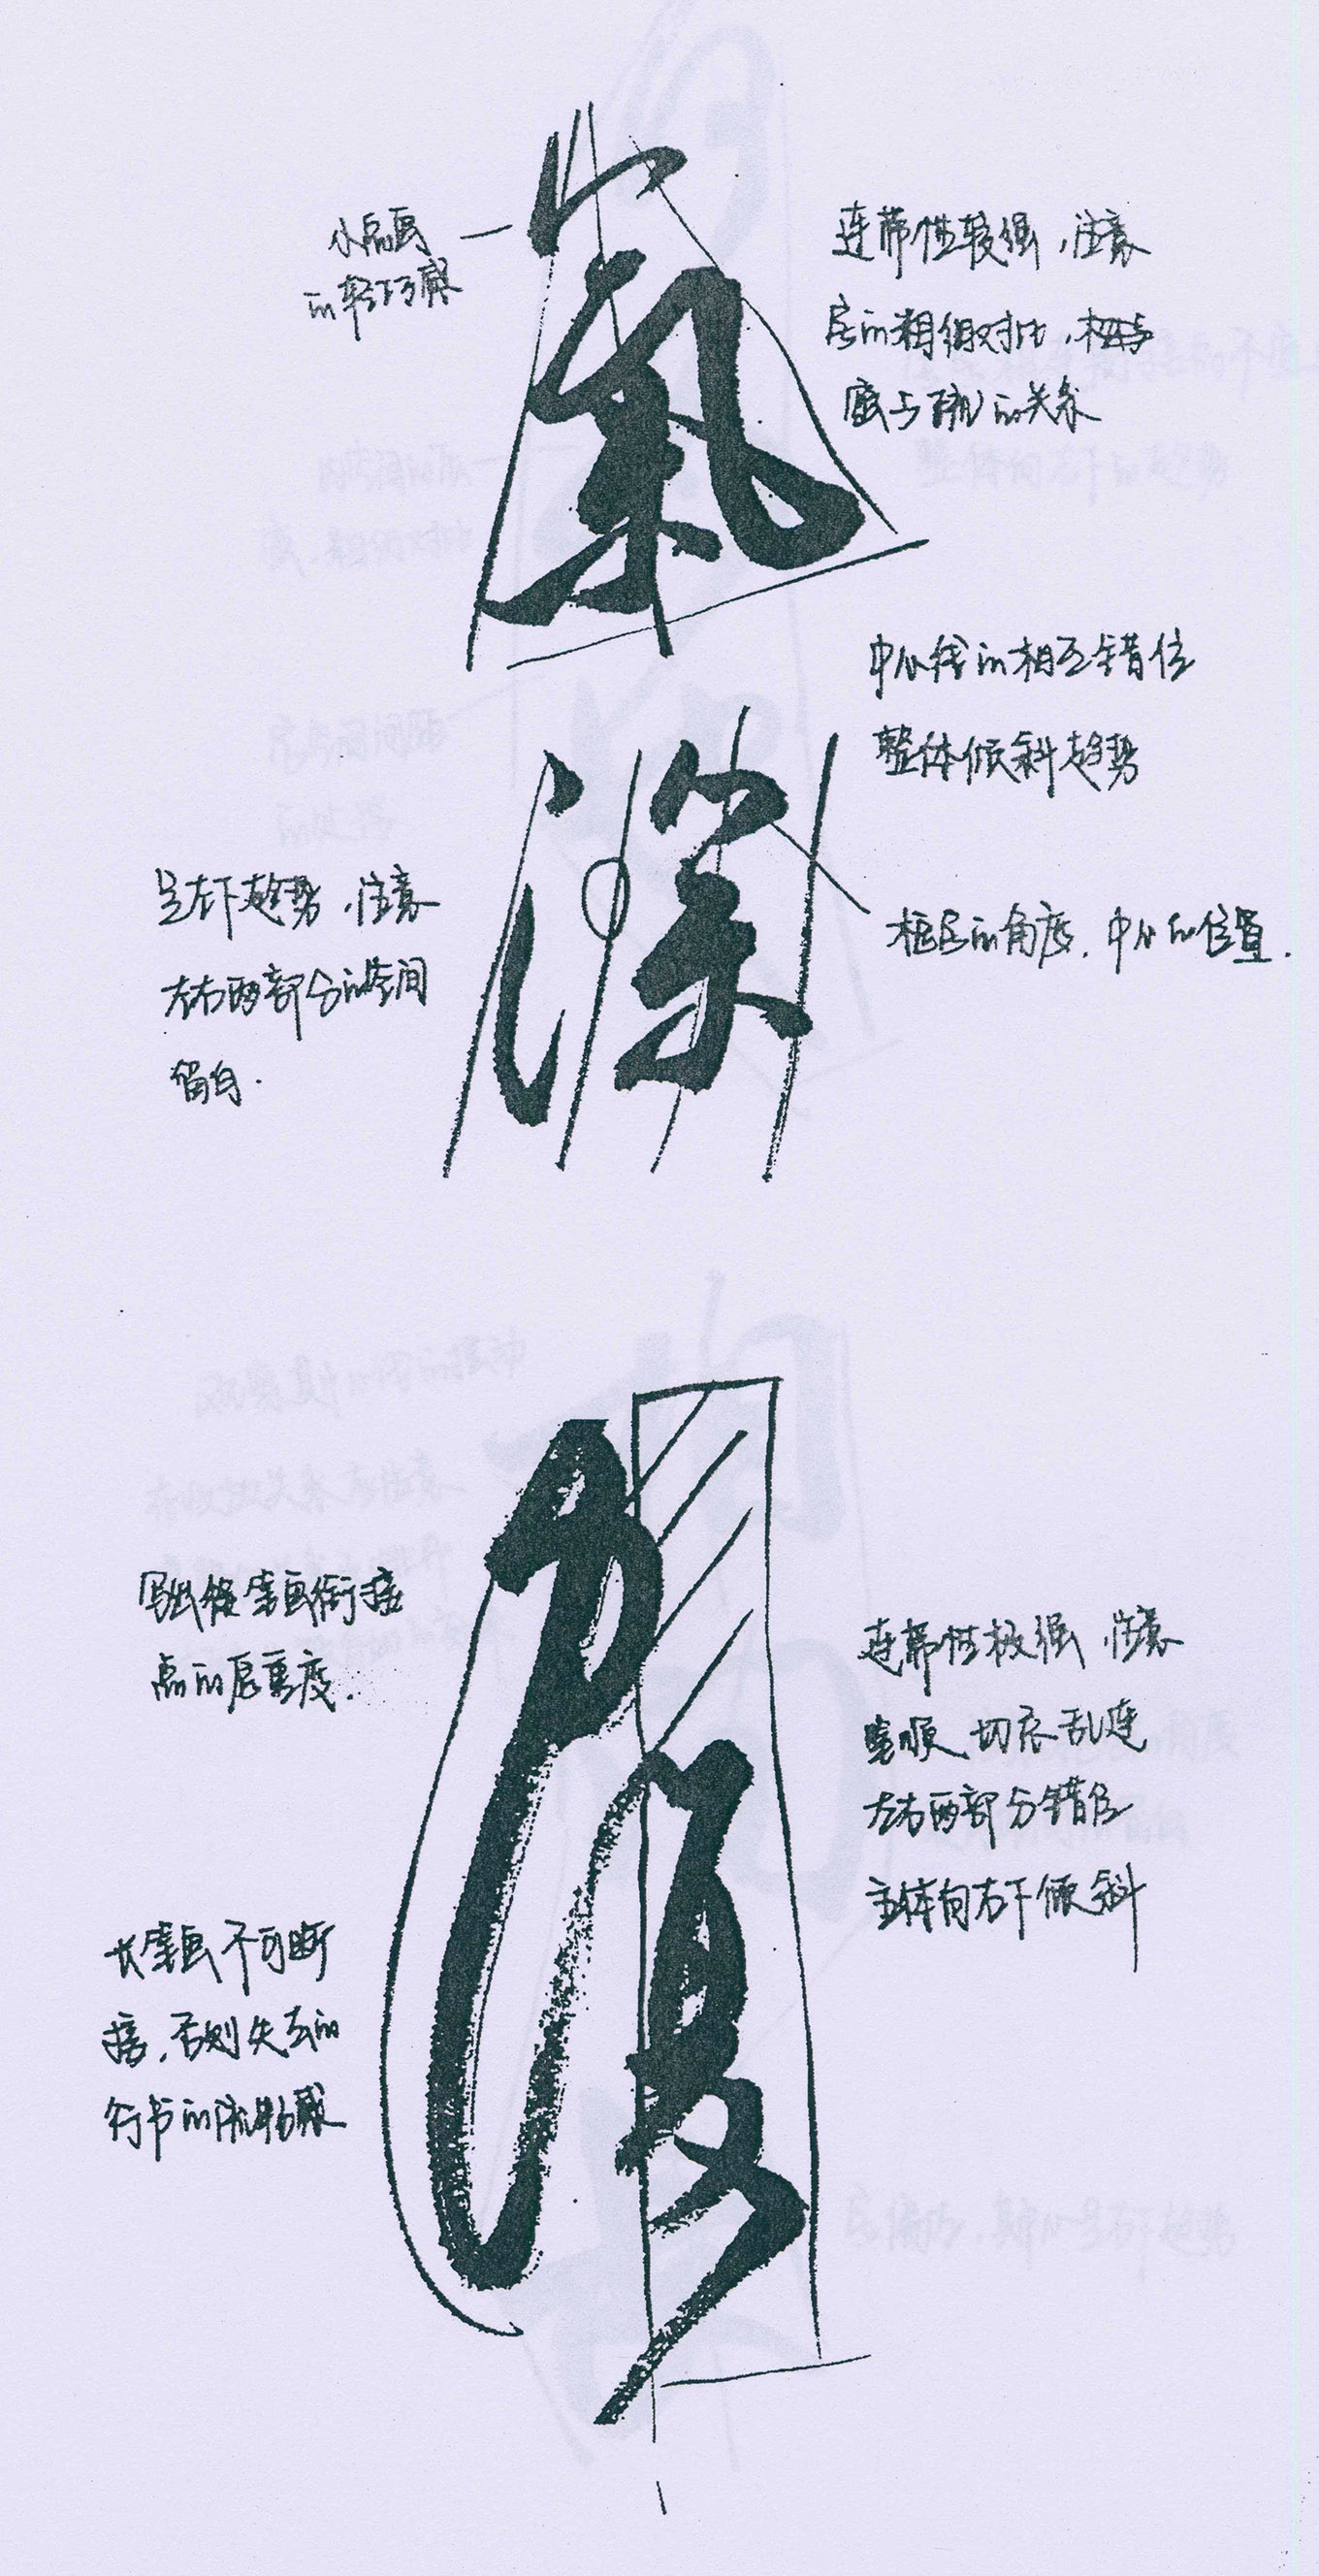 小点画
的轻巧感
氣
连带性较强,注意
后的粗细对比,
的关系
中心线的相互错位
整体倾斜趋势
深
呈左下趋势,注意
左右两部分的空间
留白.
的角度.中心的位置.
写出候笔画衔接
点的厚重度.
连带性极强,注意
笔顺,切忌乱连
左右两部分错位
主体向右下倾斜
长笔画不可断
接,否则失去的
行书的流畅感